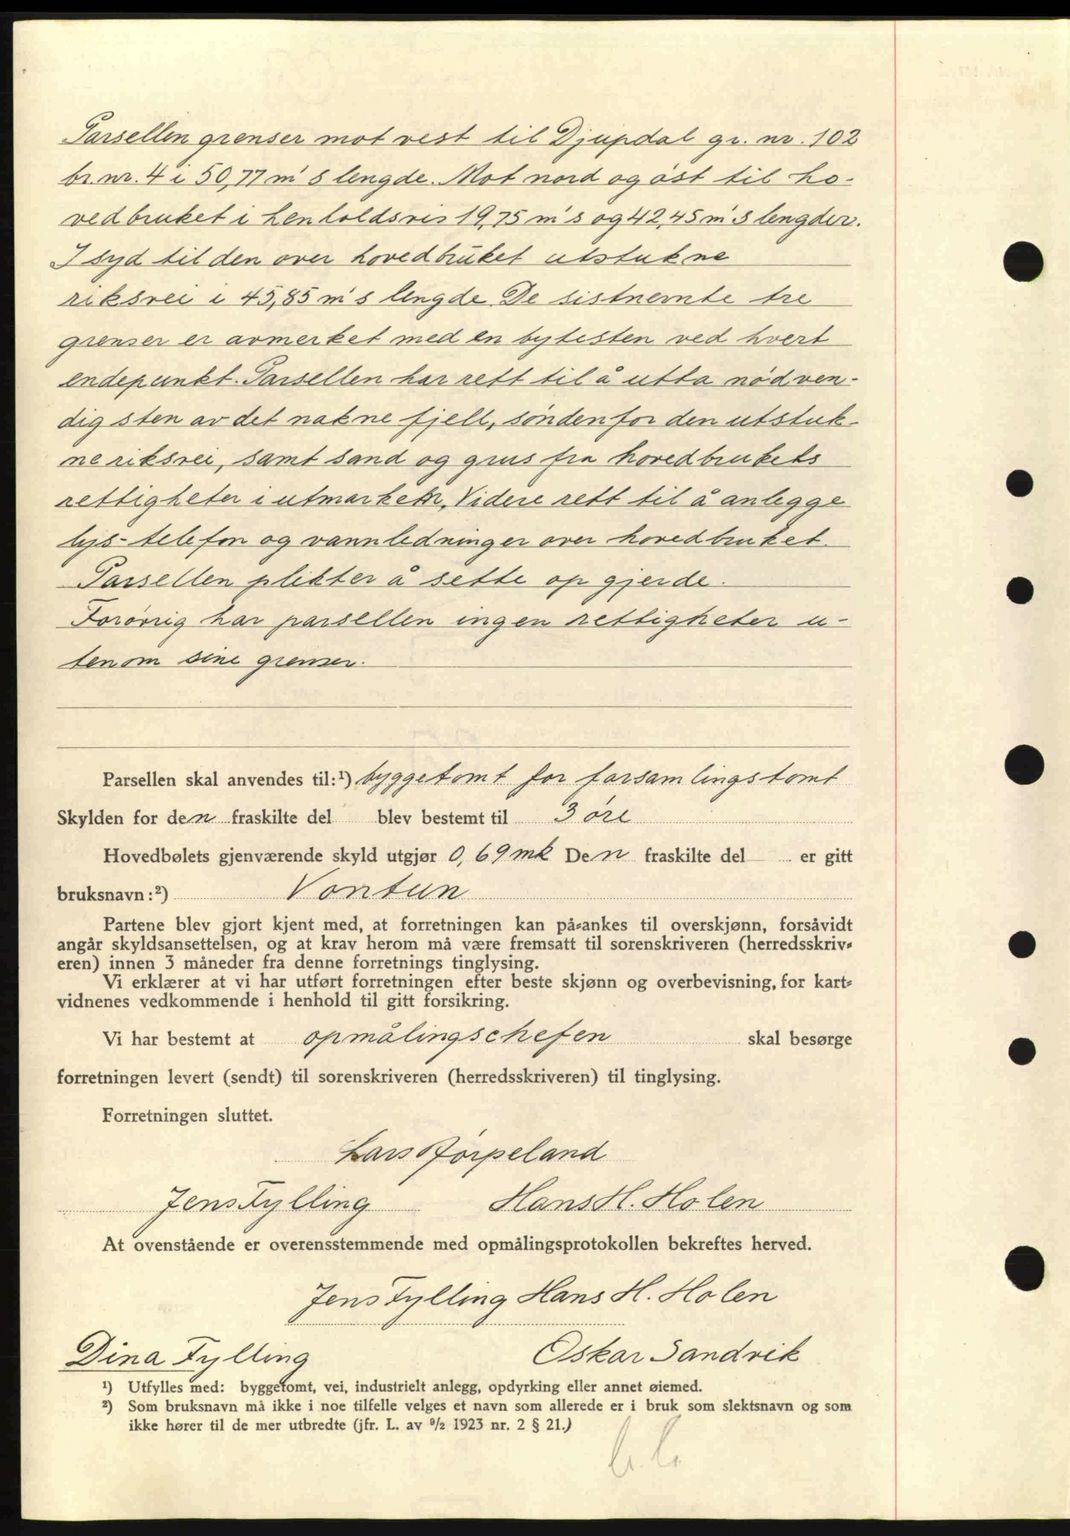 Parsellen grenser mot vest til Djupdal gr. nr. 102
br. nr. 4 i 50,77 m's lengde. Mot nord og øst til ho-
vedbruket i henholdsvis 19,75 m's og 42,45 m's lengder.
I syd til den over hovedbruket utstukne
riksvei i 45,85 m's lengde. De sistnevnte tre
grenser er avmerket med en bytesten ved hvert
endepunkt. Parsellen har rett til å utta nødven-
dig sten av det nakne fjell, sønden for den utstuk-
ne riksvei, samt sand og grus fra hovedbrukets
rettigheter i utmarken. Videre rett til å anlegge
lys- telefon og vannledninger over hovedbruket.
Parsellen plikter å sette op gjerde.
Forøvrig har parsellen ingen rettigheter u-
tenom sine grenser.
Parsellen skal anvendes til:¹) byggetomt for forsamlingstomt
Skylden for den fraskilte del blev bestemt til 3 øre
Hovedbølets gjenværende skyld utgjør 0,69 mk Den fraskilte del er gitt
bruksnavn:²) Vontun
Partene blev gjort kjent med, at forretningen kan på-ankes til overskjønn, forsåvidt
angår skyldsansettelsen, og at krav herom må være fremsatt til sorenskriveren (herredsskriv-
eren) innen 3 måneder fra denne forretnings tinglysing.
Vi erklærer at vi har utført forretningen efter beste skjønn og overbevisning, for kart-
vidnenes vedkommende i henhold til gitt forsikring.
Vi har bestemt at opmålingschefen skal besørge
forretningen levert (sendt) til sorenskriveren (herredsskriveren) til tinglysing.
Forretningen sluttet.
Lars Jørpeland
Jens Fylling Hans H. Holen
At ovenstående er overensstemmende med opmålingsprotokollen bekreftes herved.
Jens Fylling Hans H. Holen
Dina Fylling Oskar Sandvik
¹) Utfylles med: byggetomt, vei, industrielt anlegg, opdyrking eller annet øiemed.
²) Som bruksnavn må ikke i noe tilfelle velges et navn som allerede er i bruk som slektsnavn og som
ikke hører til de mer utbredte (jfr. L. av ⁹/₂ 1923 nr. 2 § 21.)